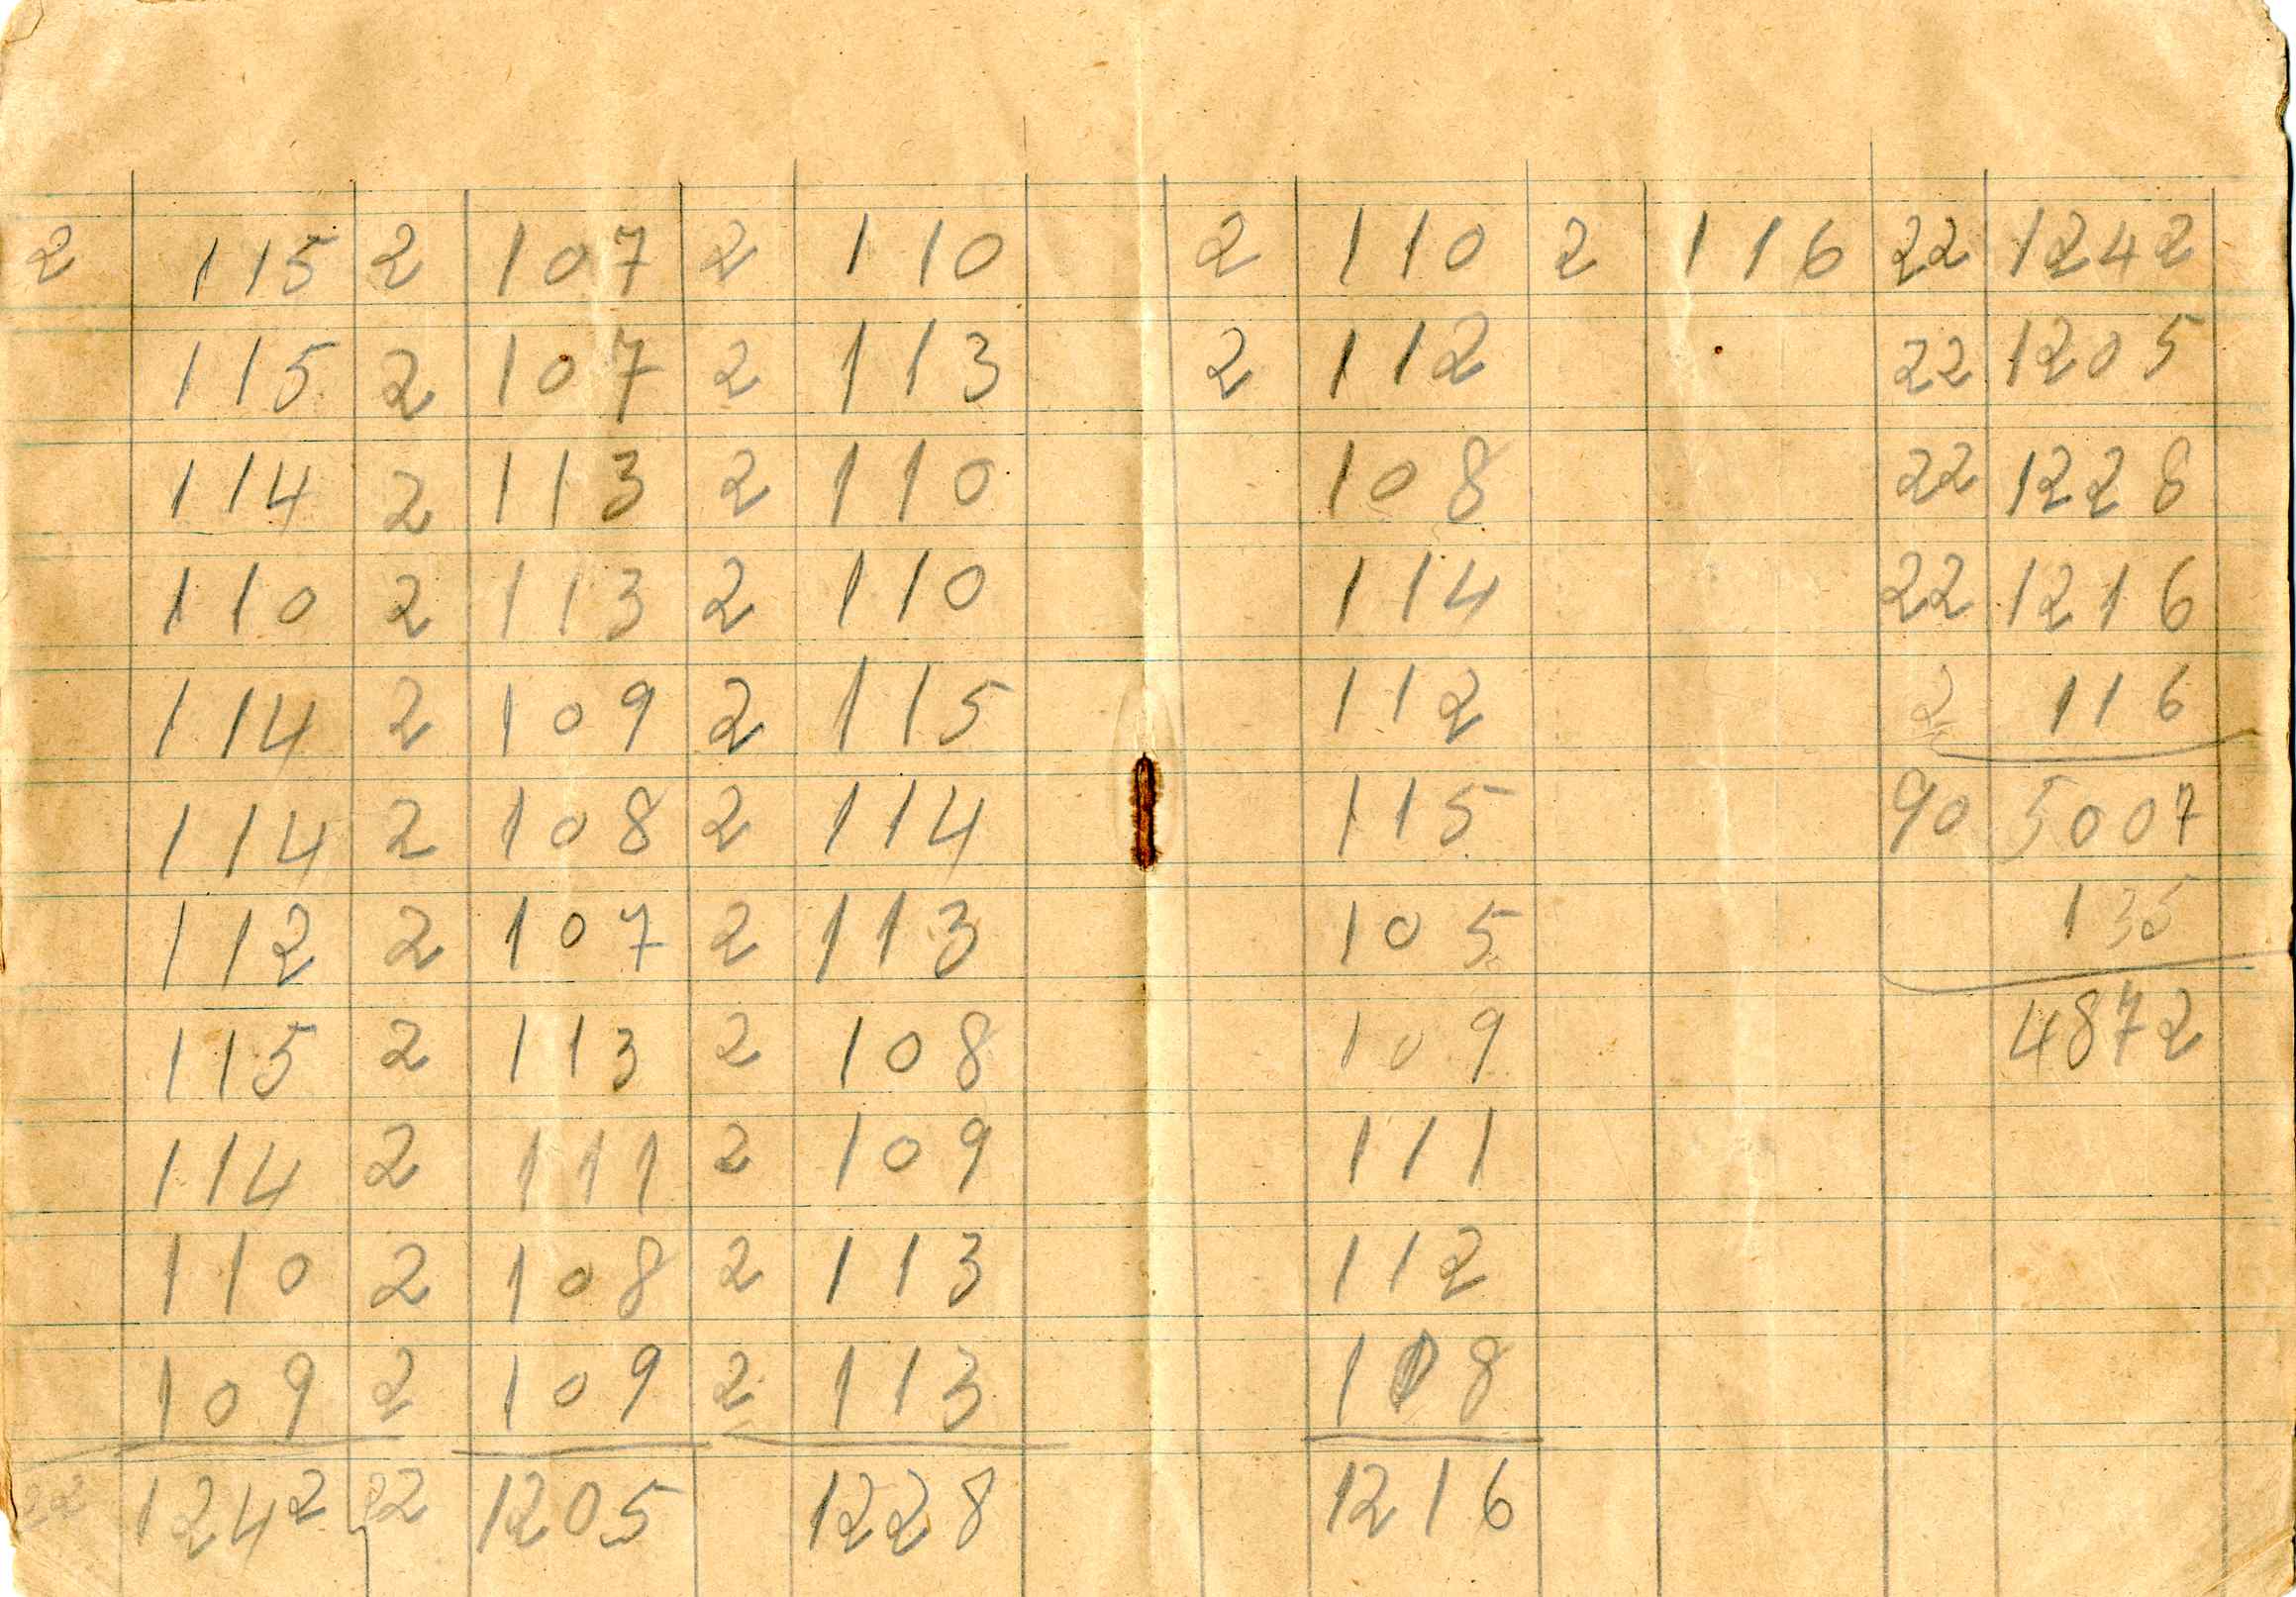 2 115 2 107 2 110 2 110 2 116 22 1242
115 2 107 2 113 2 112 22 1205
114 2 113 2 110 108 22 1228
110 2 113 2 110 114 22 1216
114 2 109 2 115 112 2 116
114 2 108 2 114 115 90 5007
112 2 107 2 113 105 135
115 2 113 2 108 109 4872
114 2 111 2 109 111
110 2 108 2 113 112
109 2 109 2 113 108
22 1242 22 1205 1228 1216